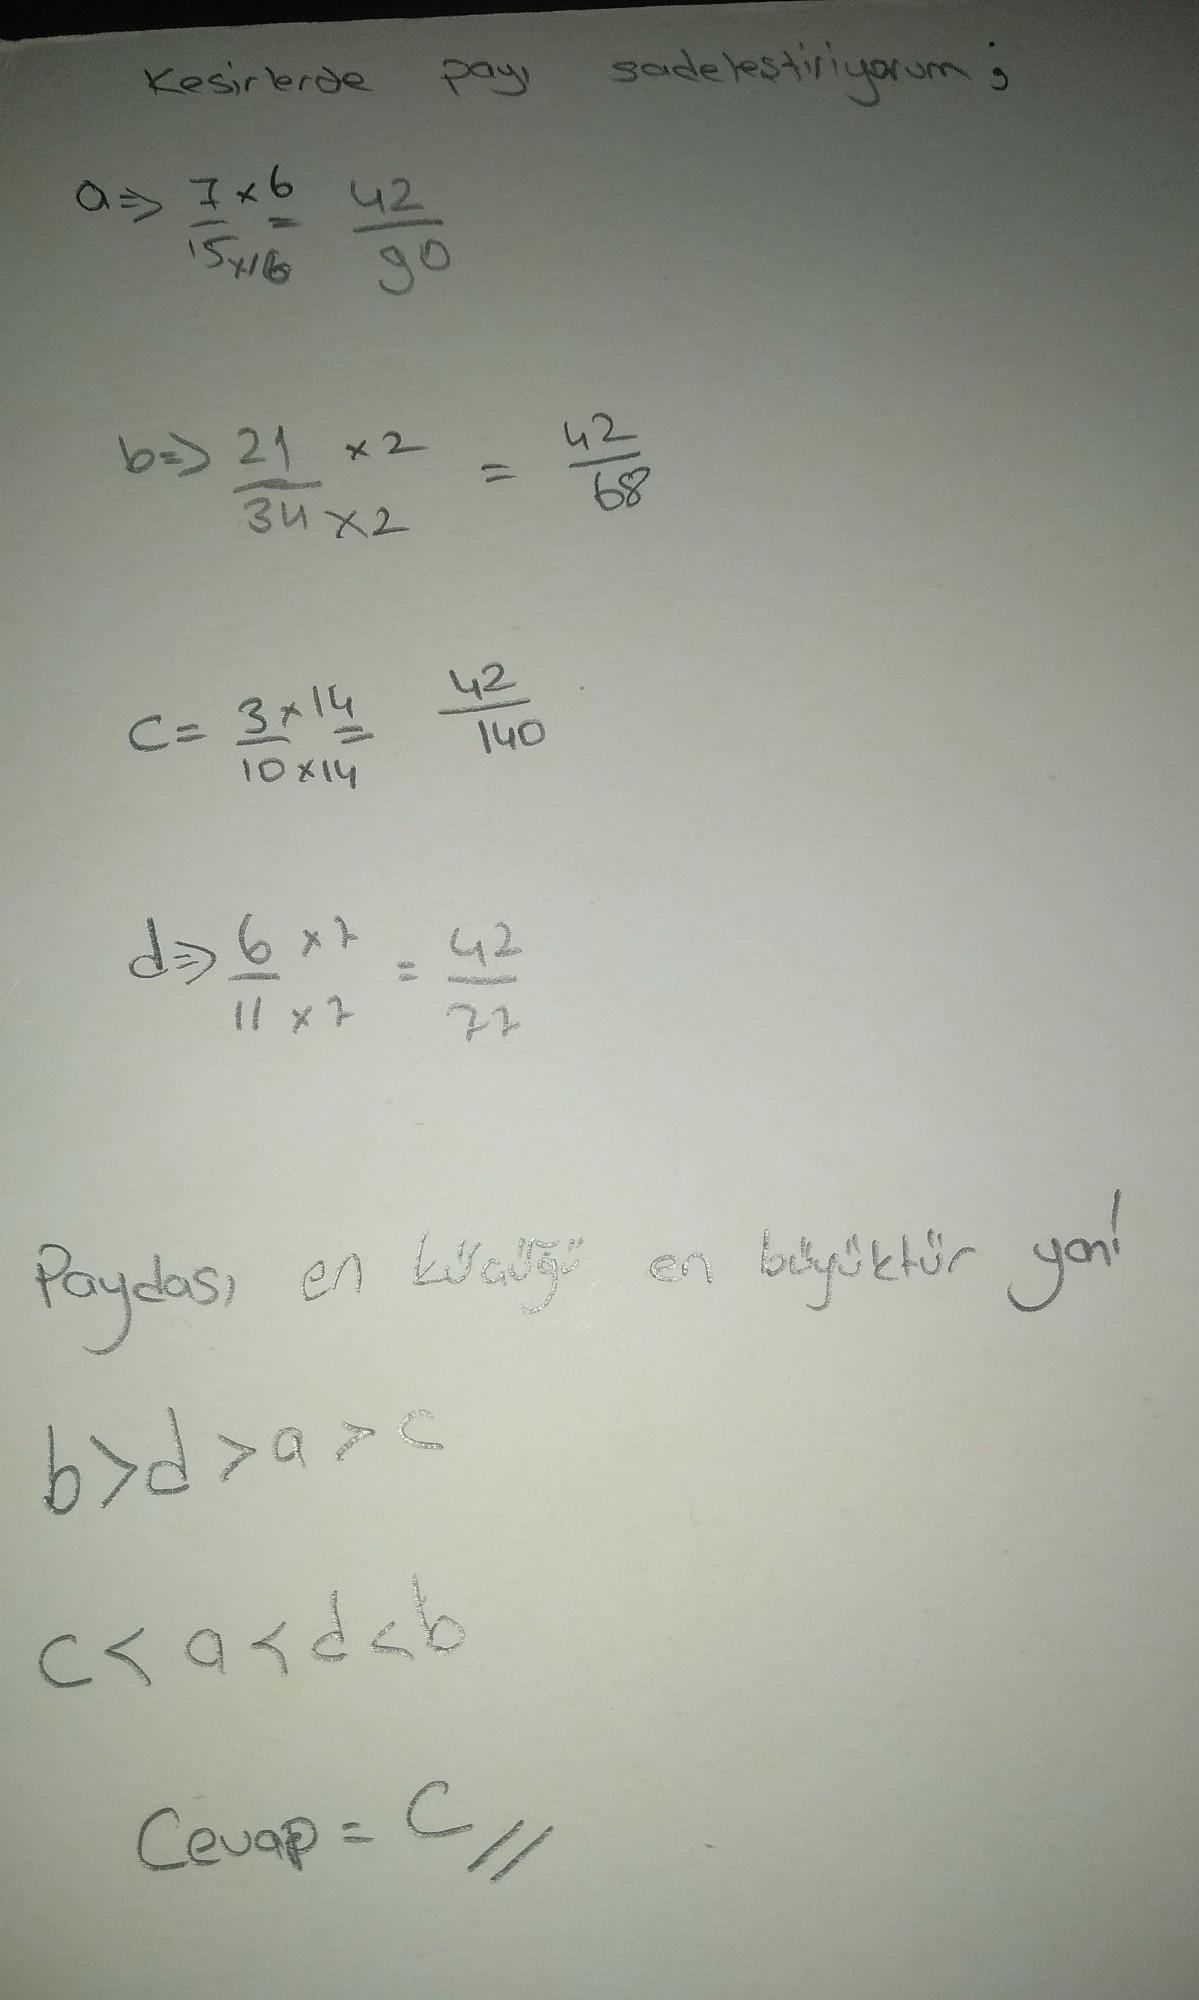 Kesirlerde payı sadeleştiriyorum ;
a⇒ 7×6 / 15×6 = 42 / 90
b⇒ 21 ×2 / 34 ×2 = 42 / 68
C= 3×14 / 10×14 = 42 / 140
d⇒ 6 ×7 / 11 ×7 = 42 / 77
Paydası en küçüğü en büyüktür yani
b>d>a>c
c<a<d<b
Cevap = C //